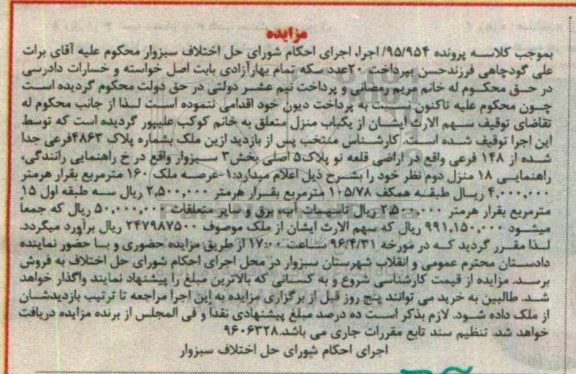 مزایده
بموجب کلاسه پرونده ۹۵/۹۵۴/اجرا، اجرای احکام شورای حل اختلاف سبزوار محکوم علیه آقای برات
علی گودچاهی فرزندحسن بپرداخت ۲۰عدد سکه تمام بهارآزادی بابت اصل خواسته و خسارات دادرسی
در حق محکوم له خانم مریم رمضانی و پرداخت نیم عشر دولتی در حق دولت محکوم گردیده است
چون محکوم علیه تاکنون نسبت به پرداخت دیون خود اقدامی ننموده است لذا از جانب محکوم له
تقاضای توقیف سهم الارث ایشان از یکباب منزل متعلق به خانم کوکب علیپور گردیده است که توسط
این اجرا توقیف شده است. کارشناس منتخب پس از بازدید ازین ملک بشماره پلاک ۴۸۶۳فرعی جدا
شده از ۱۴۸ فرعی واقع در اراضی قلعه نو پلاک۵ اصلی بخش۳ سبزوار واقع در خ راهنمایی رانندگی،
راهنمایی ۱۸ منزل دوم نظر خود را بشرح ذیل اعلام میدارد:۱-عرصه ملک ۱۶۰ مترمربع بقرار هرمتر
۴,۰۰۰,۰۰۰ ریال طبقه همکف ۱۰۵/۷۸ مترمربع بقرار هرمتر ۲,۵۰۰,۰۰۰ ریال سه طبقه اول ۱۵
مترمربع بقرار هرمتر ۲,۵۰۰,۰۰۰ ریال تاسیسات آب، برق و سایر متعلقات ۵۰,۰۰۰,۰۰۰ ریال که جمعاً
میشود ۹۹۱,۱۵۰,۰۰۰ ریال که سهم الارث ایشان از ملک موصوف ۲۴۷۹۸۷۵۰۰ ریال برآورد میگردد.
لذا مقرر گردید که در مورخه ۹۶/۴/۳۱ ساعت ۱۷:۰۰ از طریق مزایده حضوری و با حضور نماینده
دادستان محترم عمومی و انقلاب شهرستان سبزوار در محل اجرای احکام شورای حل اختلاف به فروش
برسد. مزایده از قیمت کارشناسی شروع و به کسانی که بالاترین مبلغ را پیشنهاد نمایند واگذار خواهد
شد. طالبین به خرید می توانند پنج روز قبل از برگزاری مزایده به این اجرا مراجعه تا ترتیب بازدیدشان
از ملک داده شود. لازم بذکر است ده درصد مبلغ پیشنهادی نقداً و فی المجلس از برنده مزایده دریافت
خواهد شد. تنظیم سند تابع مقررات جاری می باشد.۹۶۰۶۳۲۸
اجرای احکام شورای حل اختلاف سبزوار